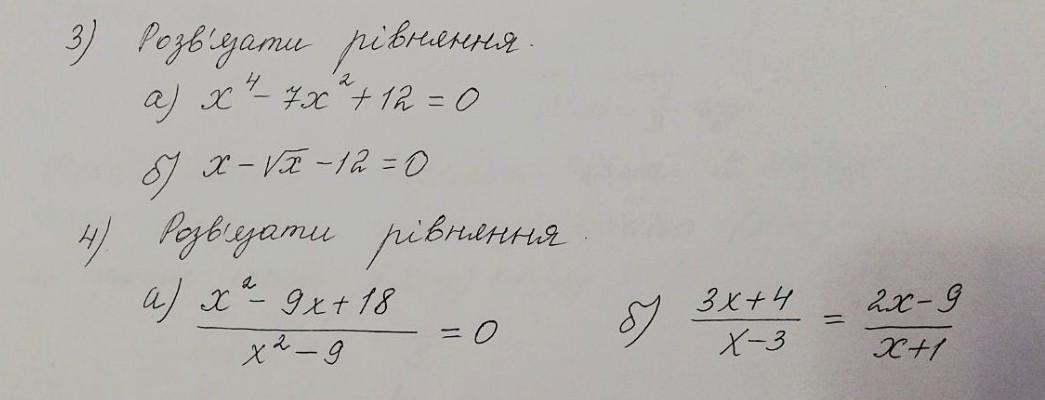 3) Розв'язати рівняння.
а) x⁴ - 7x² + 12 = 0
б) x - √x - 12 = 0
4) Розв'язати рівняння.
а) (x² - 9x + 18)/(x² - 9) = 0 б) (3x + 4)/(x - 3) = (2x - 9)/(x + 1)